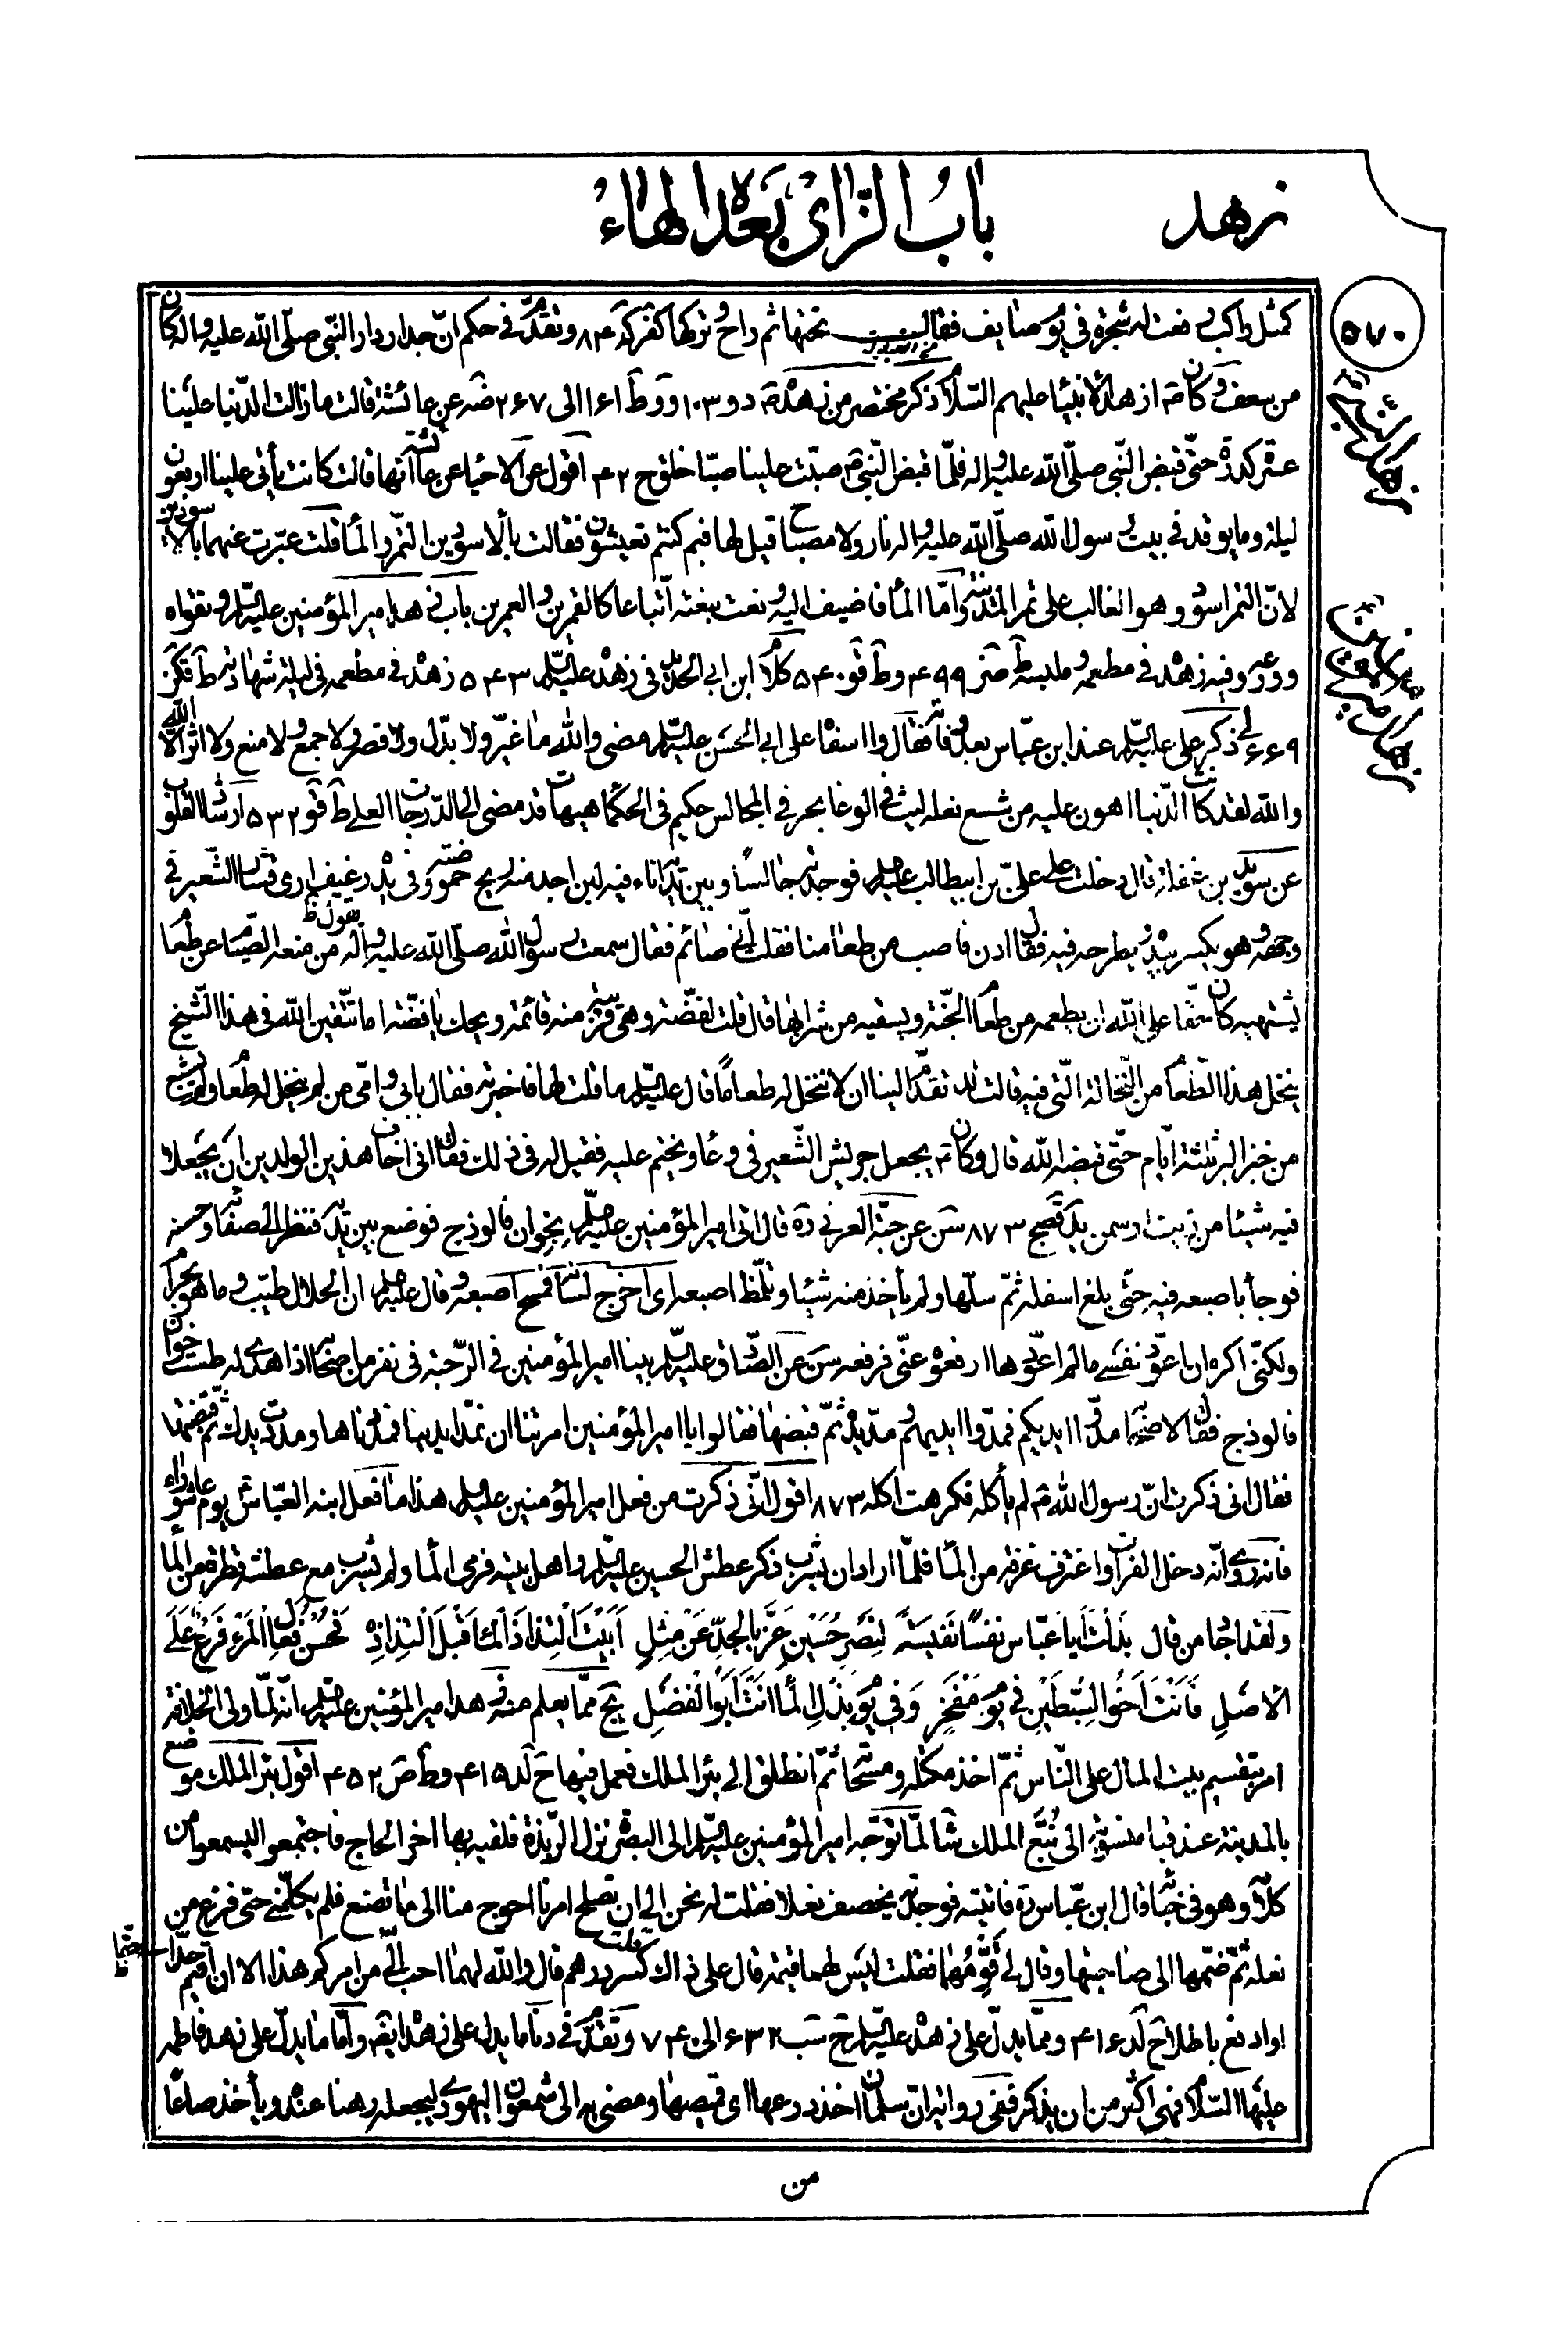 زهد
باب الزّاى بعده الهاء
٥٧٠
كمثل راكب رفعت له شجرة فى يوم صايف فقال تحتها ثم راح وتركها كفر كد ٨٤ وتقدّم فى حكم انّ جدار دار النّبى صلّى الله عليه واله كان
من سعف وكان ازهد الانبياء عليهم السّلام ذكر مختصر من زهده دو ١٠٣ وو وط ١٦١ الى ٢٦٧ ضه عن عائشة قالت ما زالت الدّنيا علينا
عسرة كدرة حتّى قبض النّبى صلّى الله عليه واله فلمّا قبض النّبىّ صبّت علينا صبّا خلق ح ٤٢ اقول عن الاحياء عن عائشة انها قالت كانت يأتى علينا اربعون
ليلة وما يوقد فى بيت رسول الله صلّى الله عليه واله نار ولا مصباح قيل لها فبم كنتم تعيشون فقالت بالاسودين التّمر والماء قلت عبّرت عنهما بالاسودين
لانّ التمر اسود وهو الغالب على تمر المدينة وامّا الماء فاضيف اليه ونعت بنعته اتّباعا كالقمرين والعمرين باب زهد امير المؤمنين عليه السلام وتقواه
وورعه وفيه زهده فى مطعمه وملبسه ط صز ٤٩٩ وط قو ٥٤٠ كلام ابن ابى الحديد فى زهده عليه السلام ٥٤٣ زهده فى مطعمه فى ليلة شهادته ط قكز
٦٦٩ لى ذكر علىّ عليه السلام عند ابن عبّاس بعد وفاته فقال وا اسفاه على ابى الحسن عليه السلام مضى والله ما غيّر ولا بدّل ولا قصر ولا جمع ولا منع ولا اثر الّا الله
والله لقد كانت الدّنيا اهون عليه من شسع نعله ليث فى الوغا بحر فى المجالس حكيم فى الحكماء هيهات قد مضى الى الدّرجات العلى ط قو ٥٣٢ ارشاد القلوب
عن سويد بن غفلة قال دخلت على علىّ بن ابيطالب عليه السلام فوجدته جالسًا وبين يديه اناء فيه لبن اجد منه ريح حموضته وفى يده رغيف ارى قشار الشّعير فى
وجهه وهو يكسر بيده ويطرحه فيه فقال ادن فاصب من طعامنا فقلت انّى صائم فقال سمعت رسول الله صلّى الله عليه واله يقول من منعه الصّيام عن طعام
يشتهيه كان حقّا على الله ان يطعمه من طعام الجنّة ويسقيه من شرابها قال قلت لفضّة وهى قريبة منه قائمة ويحك يا فضّة اما تتّقين الله فى هذا الشّيخ
ينخل هذا الطّعام من النّخالة الّتى فيه قالت قد تقدّم الينا ان لا ننخل له طعامًا قال عليه السلام ما قلت لها فاخبرته فقال بابى وامّى من لم ينخل له طعام ولم يشبع
من خبز البرّ ثلثة ايّام حتّى قبضه الله قال وكان يجعل جريش الشّعير فى وعاء ويختم عليه فقيل له فى ذلك فقال انى اخاف هذين الولدين ان يجعلا
فيه شيئا من زيت او سمن يد قصج ٨٧٣ سن عن حبّة العرنى ره قال اتى امير المؤمنين عليه السلام بخوان فالوذج فوضع بين يديه فنظر الى صفائه وحسنه
فوجأ باصبعه فيه حتّى بلغ اسفله ثمّ سلّها ولم يأخذ منه شيئا وتلمّظ اصبعه اى اخرج لسانه فمسح اصبعه وقال عليه السلام ان الحلال طيّب وما هو بحرام
ولكنّى اكره ان اعوّد نفسى ما لم اعوّدها ارفعوه عنّى فرفعه سن عن الصّادق عليه السلام بينا امير المؤمنين فى الرّحبة فى نفر من اصحابه اذا اهدى له طست خوان
فالوذج فقال لاصحابه مدّوا ايديكم فمدّوا ايديهم ومدّ يده ثمّ قبضها فقالوا يا امير المؤمنين امرتنا ان نمدّ ايدينا فمددناها ومددت يدك ثمّ قبضتها
فقال انى ذكرت انّ رسول الله لم يأكله فكرهت اكله ٨٧٣ اقول انّى ذكرت من فعل امير المؤمنين عليه السلام هذا ما فعل ابنه العبّاس يوم عاشوراء
فانه روى انّه دخل الفرات واغترف غرفة من الماء فلمّا اراد ان يشرب ذكر عطش الحسين عليه السلام واهل بيته فرمى الماء ولم يشرب مع عطشه قطرة من الماء
ولقد اجاد من قال بذلت ايا عبّاس نفسًا نفيسة لنصر حسين عزّ بالجدّ عن مثل ابيت التذاذ الماء قبل التذاذه فحسن فعال المرء فرع على
الاصل فانت اخو السّبطين فى يوم مفخر وفى يوم بذل الماء انت ابو الفضل يج ممّا يعلم منه زهد امير المؤمنين عليه السلام، انّه لمّا ولى الخلافة
امر بتقسيم بيت المال على النّاس ثمّ اخذ مكتله ومسحاته ثمّ انطلق الى بئر الملك فعمل فيها ح لد ٤١٥ وط ص ٤٥٢ اقول بئر الملك موضع
بالمدينة عند قبا منسوبة الى تبّع الملك شا لمّا توجّه امير المؤمنين عليه السلام الى البصرة نزل الرّبذة فلقيه بها اخر الحاج فاجتمعوا ليسمعوا من
كلامه وهو فى خبائه قال ابن عبّاس ره فاتيته فوجدته يخصف نعلا فقلت له نحن الى ان تصلح امرنا احوج منا الى ما تصنع فلم يكلّمنى حتّى فرغ من
نعله ثمّ ضمّها الى صاحبتها وقال لى قوّمهما فقلت ليس لهما قيمة قال على ذاك قلت كسر درهم قال والله لهما احبّ الىّ من امركم هذا الا ان اقيم حدّا حقّا ظ
او ادفع باطلا ح لد ٤١٦ وممّا يدلّ على زهده عليه السلام ح سب ٦٣٢ الى ٧٤٠ وتقدّم فى دنا ما يدل على زهده ايضه وامّا ما يدلّ على زهد فاطمه
عليها السّلام فهى اكثر من ان يذكر ففى رواية انّ سلمان اخذ درعها اى قميصها ومضى به الى شمعون اليهودى ليجعله رهنا عنده ويأخذ صاعًا
من